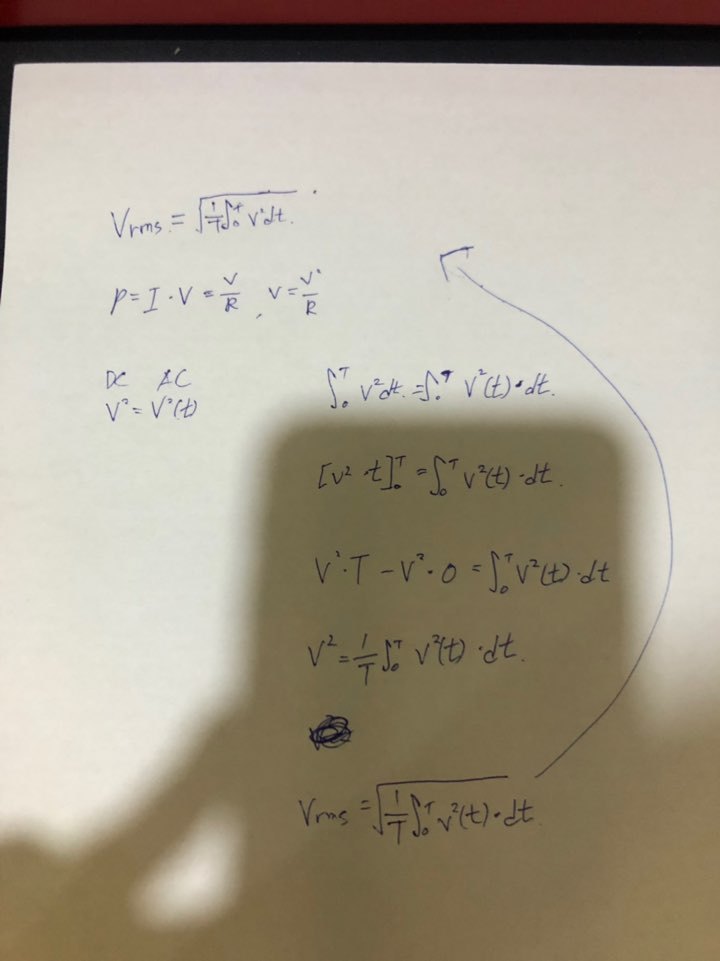 Vrms = √(1/T ∫₀ᵀ v²dt.
P = I · V = V/R , V = V²/R
DC AC
V² = V²(t)
∫₀ᵀ V²dt. = ∫₀ᵀ V²(t)·dt.
[V² · t]₀ᵀ = ∫₀ᵀ V²(t) · dt.
V² · T − V² · 0 = ∫₀ᵀ V²(t) · dt
V² = 1/T ∫₀ᵀ V²(t) · dt.
Vrms = √(1/T ∫₀ᵀ v²(t) · dt.